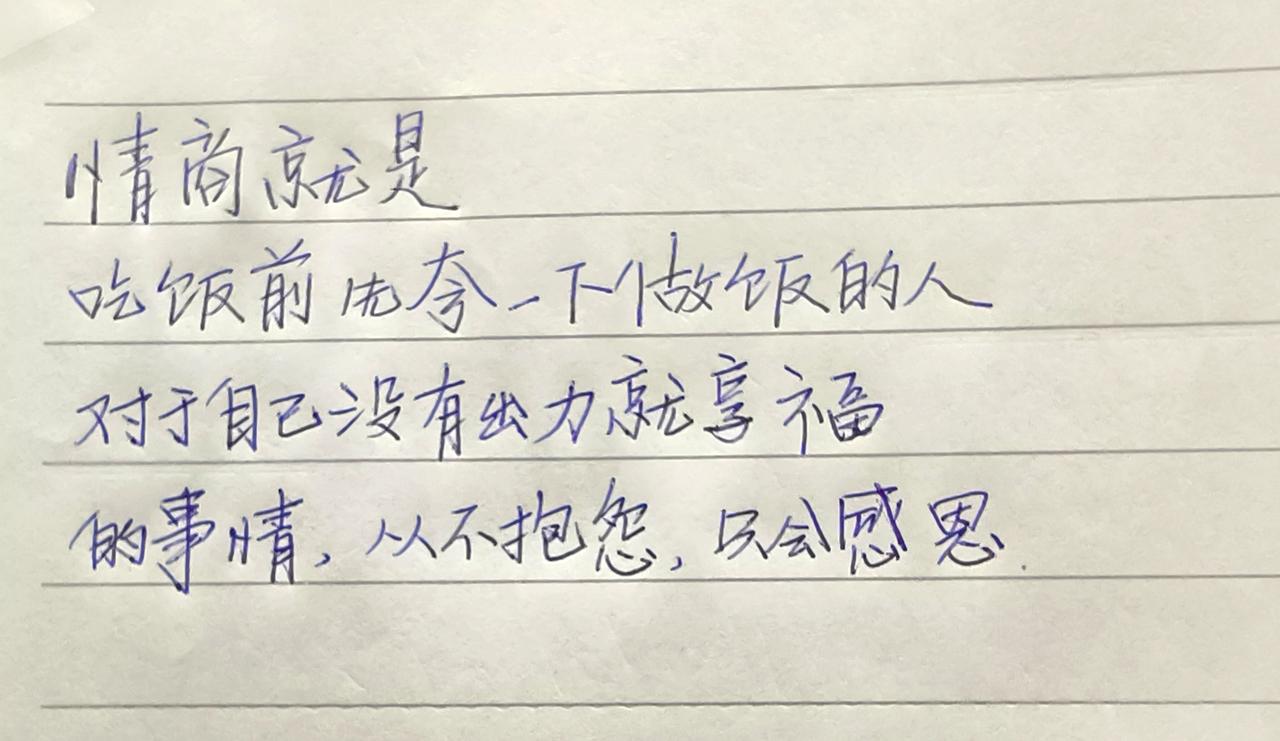 情商就是
吃饭前先夸一下做饭的人
对于自己没有出力就享福
的事情，从不抱怨，只会感恩.